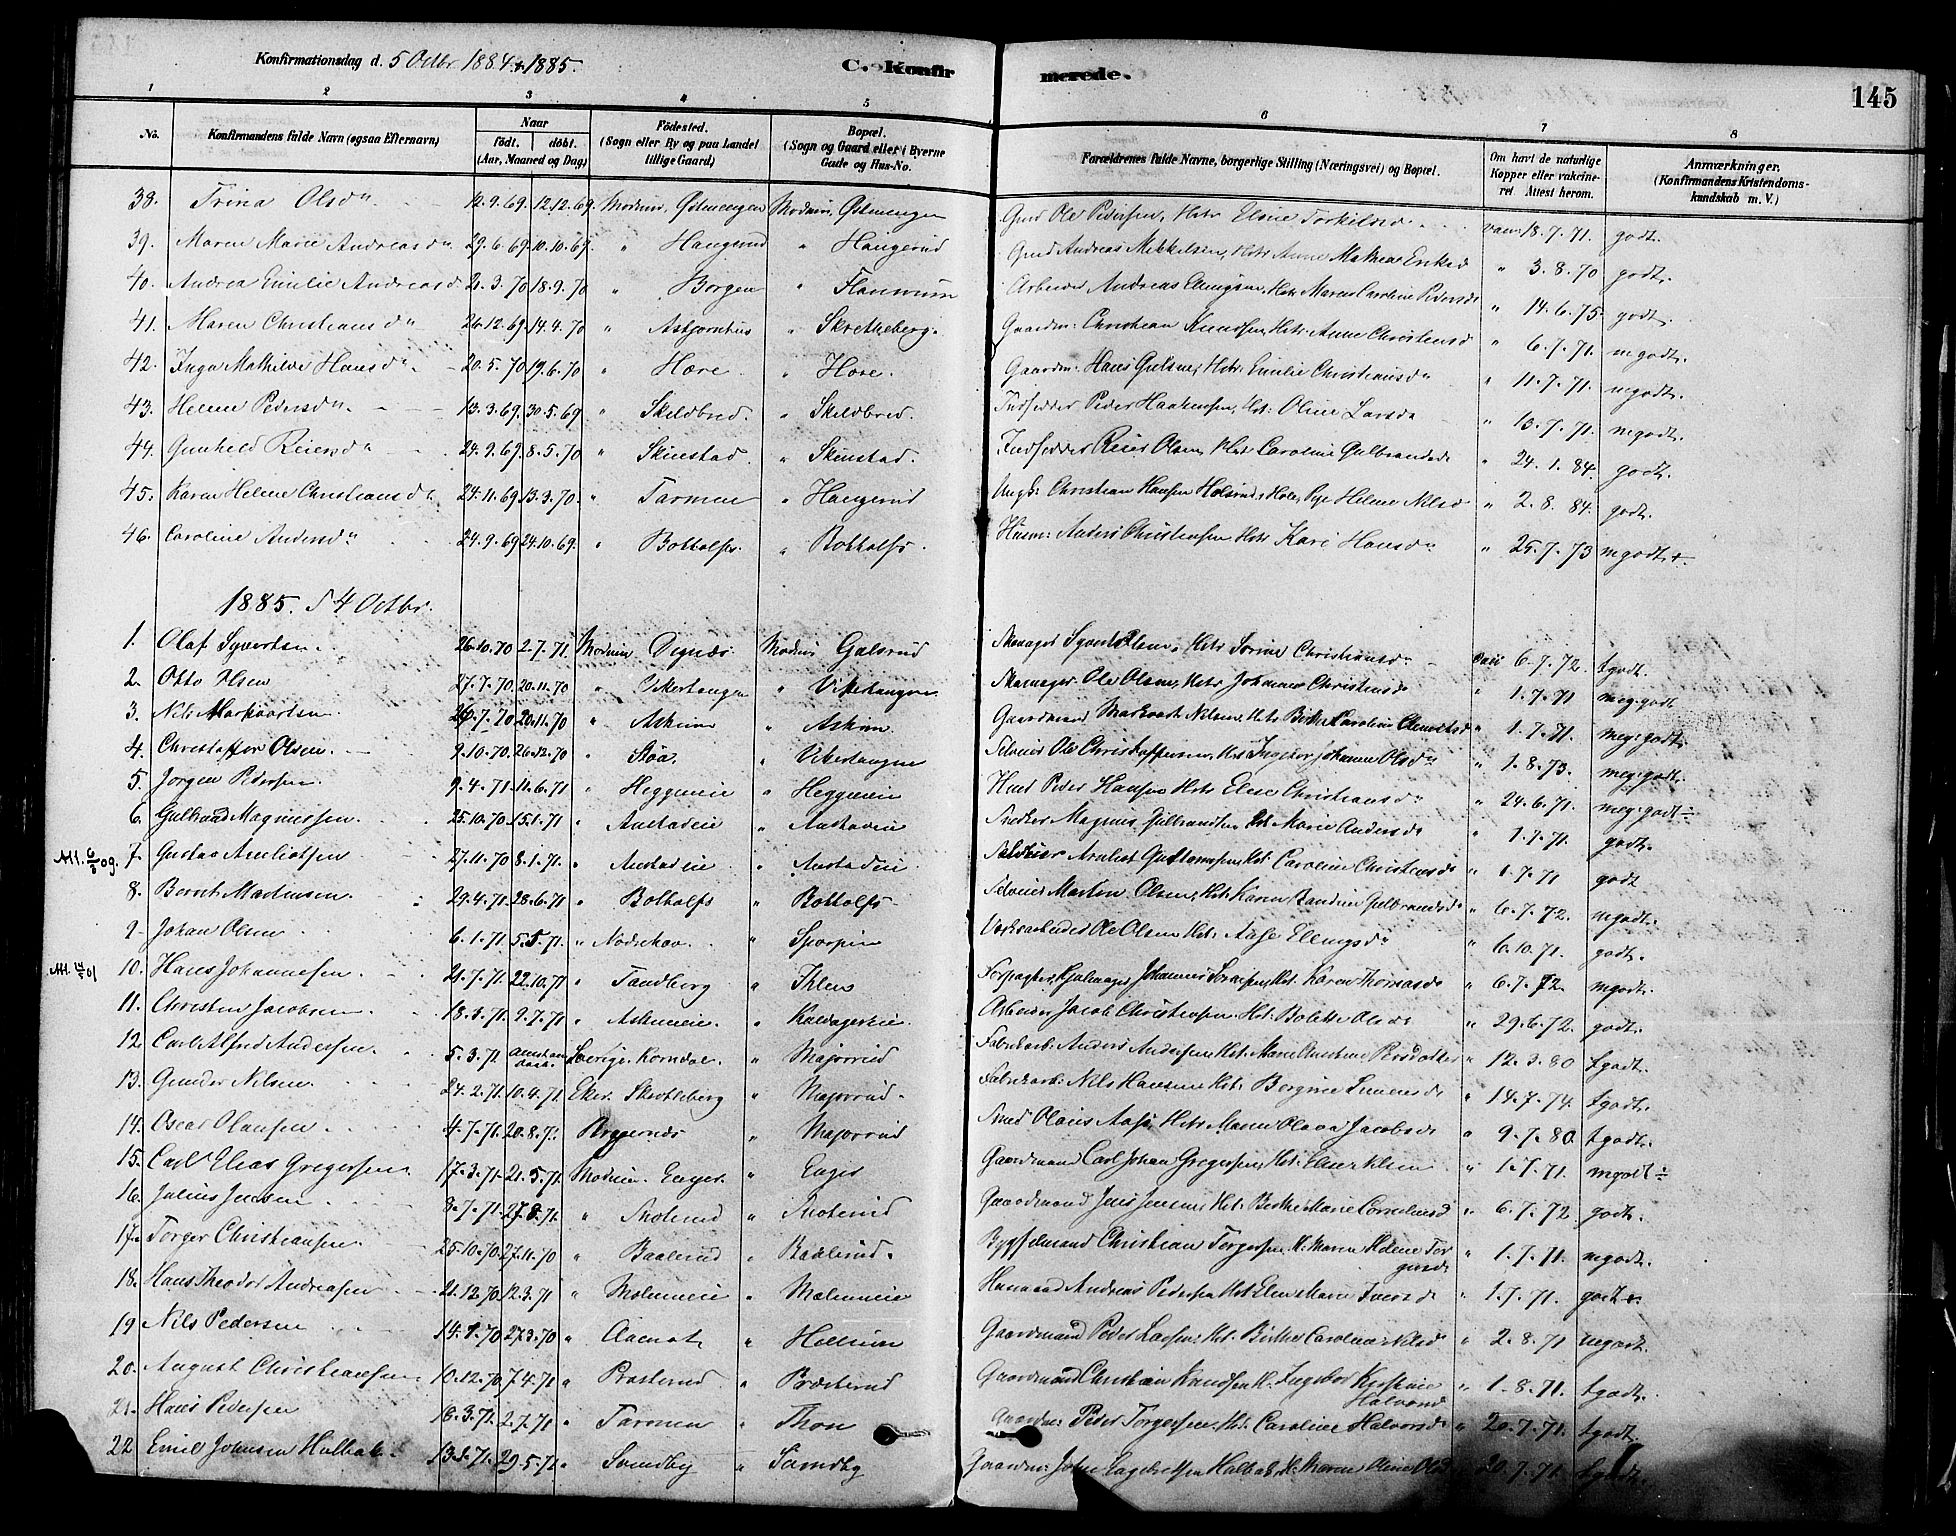 Konfirmationsdag d. 5 Octbr 1884 & 1885.
C. Konfirmerede.
145
1 2 3 4 5 6 7 8
No. Konfirmandens fulde Navn (ogsaa Efternavn) Naar født. døbt. (Aar, Maaned og Dag) Fødested. (Sogn eller By og paa Landet tillige Gaard) Bopæl. (Sogn og Gaard eller i Byerne Gade og Hus-No. Forældrenes fulde Navne, borgerlige Stilling (Næringsvei) og Bopæl. Om havt de naturlige Kopper eller vakcineret. Attest herom. Anmærkninger. (Konfirmandens Kristendomskundskab m. V.)
38. Trina Olsdn 12.9.69. 12.12.69. Modum, Østmengen Modum, Østmengen Gmd Ole Pedersen, Hstr Eline Torkilsd vacc 18.7.71. godt.
39. Maren Marie Andreasdn 29.6.69. 10.10.69. " Haugerud " Haugerud Gmd Andreas Mikkelsen, Hstr Anne Mathea Eriksd " 3.8.70 godt.
40. Andrea Emilie Andreasd 21.3.70 18.9.70 " Borgen " Flannum Arbeider Andreas Ellingsen, Hstr Maren Caroline Pedersd " 14.6.75. godt.
41. Maren Christiansdn 26.12.69. 14.4.70 " Asbjørnhus " Skretteberg. Gaardm: Christian Knudsen, Hstr. Anne Christensd " 6.7.71. mgodt.
42. Inga Mathilde Hansdn 20.5.70 19.6.70 " Hære. " Hore. Gaardm. Hans Gulsen, Hstr. Emilie Christiansdn " 11.7.71. mgodt.
43. Helene Pedersdn. 13.3.69. 30.5.69 " Skeldbred. " Skeldbred. Indsidder Peder Haakensen, Hst: Oline Larsd " 13.7.71. mgodt.
44. Gunhild Reiersdn 24.9.69. 8.5.70 " Skinstad. " Skinstad. Indsidder Reier Olsen, Hst Caroline Gulbrandsd " 24.1.84. godt.
45. Karen Helene Christiansdn 24.11.69. 13.3.70. " Tarmen " Haugerud Ungk: Christian Hansen, Pige Helene Nilsd " 2.8.84. godt.
46. Caroline Andersdn 24.9.69 24.10.69. " Botholfs " Botholfs. Husm: Anders Christensen Hstr Kari Hansdn " 25.7.73 mgodt+
1885. d 4 Octbr.
1. Olaf Syvertsen. 26.10.70 2.7.71. Modum Dignæs Modum Galsrud Syvert Olsen, Hstr Sorine Christiansdn vacc 6.7.72. tgodt.
2. Otto Olsen 27.7.70. 20.11.70 " Vikertangen " Vikertangen Ole Olsen, Hstr Johanne Christensd " 1.7.71 meg:godt
3. Nils Markvartsen 26.7.70 20.11.70 " Askim " Askim Gaardmand Markvart Nilsen, Hstr Birthe Caroline Clemetsd " 1.7.71. meg:godt.
4. Christoffer Olsen. 9.10.70. 26.12.70 " Støa " Vikertangen Ole Christoffersen, Hst Ingebor Johanne Olsdn " 1.8.73. meg:godt.
5. Jørgen Pedersen. 9.4.71. 11.6.71 " Heggeneie " Heggeneie Husm Peder Hansen Hstr Elise Christiansd " 24.6.71. meg:godt÷
6. Gulbrand Magnussen. 25.10.70. 15.1.71 " Austadeie " Austadeie Snedker Magnus Gulbrandsen Hst Marie Andersd " 1.7.71. godt.
Att. 6/3 09. 7. Gustav Arnliotsen 27.11.70 8.1.71. " Austadeie " Austadeie Arnliot Gustavsen, Hst. Caroline Christensd " 1.7.71 godt
8. Bernt Martinsen 29.4.71. 28.6.71 " Botholfs " Botholfs Martin Olsen, Hst. Karen Randine Gulbrandsd " 6.7.72. mgodt.
9. Johan Olsen 6.1.71. 5.5.71. " Nodeskov " Sporpin Værksarbeider Ole Olsen Hst: Aase Ellingsdn " 6.10.71. godt.
10. Hans Johannesen 21.7.71. 22.10.71 " Tandberg " Ihlen Johannes Hst Karen Thorvasd " 6.7.72. mgodt.
11. Christen Jacobsen 18.3.71. 9.7.71 " Askimeie. " Kaldagereie. Arbeider Jacob Christensen Hst: Bolette Olsd " 29.6.72. godt.
12. Carl Alfred Andersen. 5.3.71. Sverige. Korndal " Majorrud Fabrikarb. Anders Andersen Hst: Marie Christine Persdotter " 12.3.80 tgodt.
13. Gunder Nilsen. 24.2.71. 10.4.71 Eker. Skotteberg " Majorrud. Fabrikarb: Nils Hansen Hst: Borgine Simensd " 14.7.74. tgodt.
14. Oscar Olausen. 4.7.71. 20.8.71. Bragernes " Majorrud Smed Olaus Aas, Hstr Maren Olava Jacobsd " 9.7.80. tgodt.
15. Carl Elias Gregersen. 17.3.71. 21.5.71. Modum. Enger. " Enger Gaardmand Carl Johan Gregersen, Hst: Elise Nilsen " 1.7.71. mgodt÷
16. Julius Jensen 8.7.71. 27.8.71. " Snoterud " Snoterud Gaardmand Jens Jensen, Hst. Berthe Marie Corneliusd " 6.7.72 godt.
17. Torger Christiansen. 25.10.70. 27.11.70 " Baalerud " Baalerud. Bygselmand Christian Torgersen. H. Maren Helene Torgersd " 1.7.71. mgodt.
18. Hans Theodor Andreasen 21.12.70. 12.3.71 " Malmeie " Malmeie Andreas Pedersen Hst Elen Marie Iversd " 1.7.71. godt+
19 Nils Pedersen 14.1.70 27.3.70 " Aamot " Hellerum Gaardmand Peder Larsen, Hst. Birthe Caroline Nilsd " 2.8.71 megodt.
20. August Christiansen 10.12.70. 7.4.71 " Præsterud " Præsterud Gaardmand Christian Knudsen H. Ingebor Kirstine Halvorsd " 1.8.71. tgodt.
21. Hans Pedersen 18.3.71. 2.7.71 " Tarmen " Thon Gaardm: Peder Torgersen, Hst. Caroline Halvorsd " 20.7.71. tgodt.
22 Emil Johnsen Halbak. 13.1.71. 29.5.71 " Sundby " Sundby Gaardm: John Engebretsen Halbak H. Maren Oline Olsd " 20.7.71. tgodt.